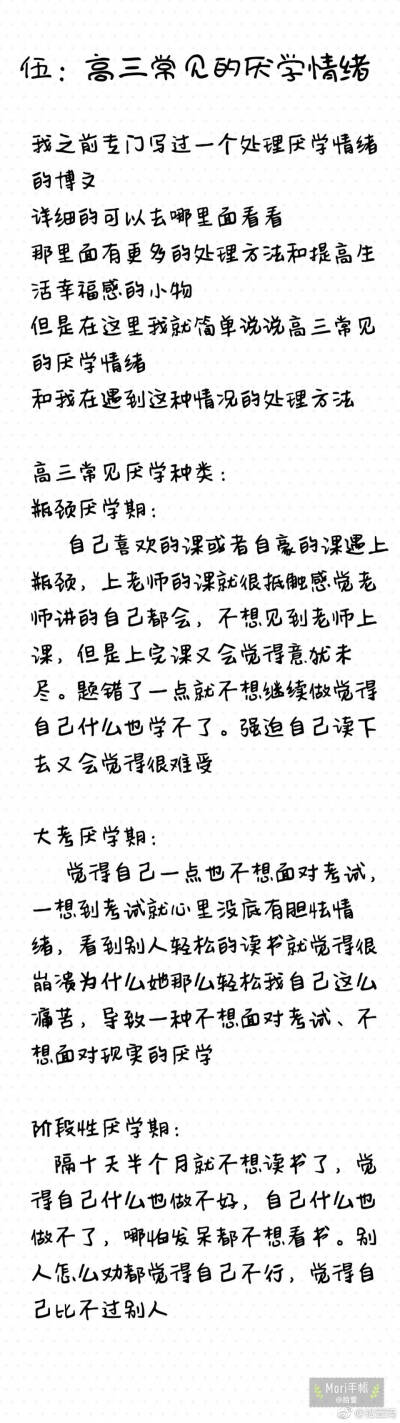 伍：高三常见的厌学情绪
我之前专门写过一个处理厌学情绪
的博文
详细的可以去哪里面看看
那里面有更多的处理方法和提高生
活幸福感的小物
但是在这里我就简单说说高三常见
的厌学情绪
和我在遇到这种情况的处理方法
高三常见厌学种类：
瓶颈厌学期：
自己喜欢的课或者自豪的课遇上
瓶颈，上老师的课就很抵触感觉老
师讲的自己都会，不想见到老师上
课，但是上完课又会觉得意犹未
尽。题错了一点就不想继续做觉得
自己什么也学不了。强迫自己读下
去又会觉得很难受
大考厌学期：
觉得自己一点也不想面对考试，
一想到考试就心里没底有胆怯情
绪，看到别人轻松的读书就觉得很
崩溃为什么她那么轻松我自己这么
痛苦，导致一种不想面对考试、不
想面对现实的厌学
阶段性厌学期：
隔十天半个月就不想读书了，觉
得自己什么也做不好，自己什么也
做不了，哪怕发呆都不想看书。别
人怎么劝都觉得自己不行，觉得自
己比不过别人
Mori手帐